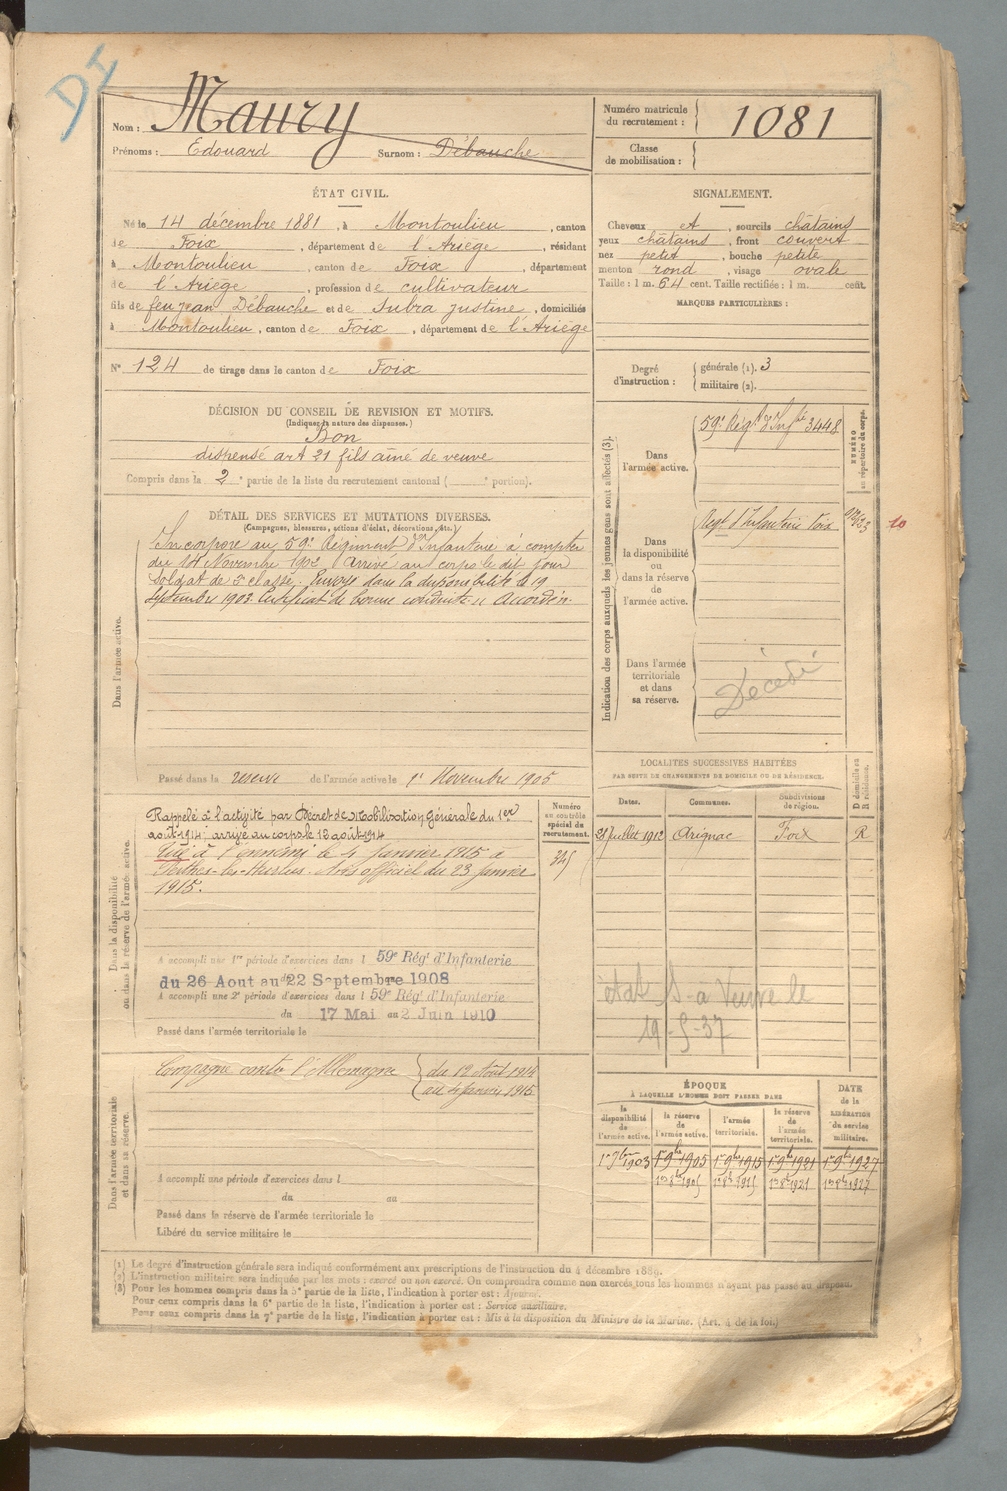 DI
Nom : Maury
Prénoms : Edouard Surnom : Débauche
Numéro matricule du recrutement : 1081
Classe de mobilisation :
ÉTAT CIVIL.
Né le 14 décembre 1881, à Montoulieu, canton
de Foix, département de l'Ariège, résidant
à Montoulieu, canton de Foix, département
de l'Ariège, profession de cultivateur
fils de feu Jean Débauche et de Subra Justine, domiciliés
à Montoulieu, canton de Foix, département de l'Ariège
N° 124 de tirage dans le canton de Foix
SIGNALEMENT.
Cheveux et, sourcils châtains
yeux châtains, front couvert
nez petit, bouche petite
menton rond, visage ovale
Taille : 1 m. 64 cent. Taille rectifiée : 1 m. cent.
MARQUES PARTICULIÈRES :
Degré d'instruction : générale (1). 3
militaire (2).
DÉCISION DU CONSEIL DE REVISION ET MOTIFS.
(Indiquer la nature des dispenses.)
Bon
dispensé art 21 fils aîné de veuve
Compris dans la 2e partie de la liste du recrutement cantonal ( e portion).
DÉTAIL DES SERVICES ET MUTATIONS DIVERSES.
(Campagnes, blessures, actions d'éclat, décorations, etc.)
Dans l'armée active.
Incorporé au 59e Régiment d'Infanterie à compter
du 14 Novembre 1902 Arrivé au corps le dit jour
Soldat de 2e classe. Envoyé dans la disponibilité le 19
Septembre 1903. Certificat de bonne conduite Accordé.
Passé dans la réserve de l'armée active le 1er Novembre 1905
Indication des corps auxquels les jeunes gens sont affectés (3).
NUMÉRO au répertoire du corps.
Dans l'armée active.
59e Régt d'Infie 3448
Dans la disponibilité ou dans la réserve de l'armée active.
Régt d'Infanterie Foix
10
Dans l'armée territoriale et dans sa réserve.
Décédé
Dans la disponibilité ou dans la réserve de l'armée active.
Numéro au contrôle spécial de recrutement.
Rappelé à l'activité par Décret de Mobilisation Générale du 1er
août 1914 : arrivé au corps le 12 août 1914
Tué à l'ennemi le 4 Janvier 1915 à
Perthes-les-Hurlus. Avis officiel du 23 Janvier
1915.
345
A accompli une 1re période d'exercices dans l 59e Régt d'Infanterie
du 26 Aout au 22 Septembre 1908
A accompli une 2e période d'exercices dans l 59e Régt d'Infanterie
du 17 Mai au 2 Juin 1910
Passé dans l'armée territoriale le
LOCALITÉS SUCCESSIVES HABITÉES
PAR SUITE DE CHANGEMENTS DE DOMICILE OU DE RÉSIDENCE.
Dates. Communes. Subdivisions de région. D domicile ou R résidence.
21 Juillet 1912 Arignac Foix R
état S - a Veuve le
19-5-37
Dans l'armée territoriale et dans sa réserve.
Campagne contre l'Allemagne du 12 Août 1914
au 4 Janvier 1915
A accompli une période d'exercices dans l
du au
Passé dans la réserve de l'armée territoriale le
Libéré du service militaire le
ÉPOQUE
À LAQUELLE L'HOMME DOIT PASSER DANS
DATE de la LIBÉRATION du service militaire.
la disponibilité de l'armée active. la réserve de l'armée active. l'armée territoriale. la réserve de l'armée territoriale.
1er 9bre 1903 1er 9bre 1905 1er 9bre 1915 1er 9bre 1921 1er 9bre 1927
1er 8bre 1905 1er 8bre 1915 1er 8bre 1921 1er 8bre 1927
(1) Le degré d'instruction générale sera indiqué conformément aux prescriptions de l'instruction du 4 décembre 1889.
(2) L'instruction militaire sera indiquée par les mots : exercé ou non exercé. On comprendra comme non exercés tous les hommes n'ayant pas passé au drapeau.
(3) Pour les hommes compris dans la 5e partie de la liste, l'indication à porter est : Ajourné.
Pour ceux compris dans la 6e partie de la liste, l'indication à porter est : Service auxiliaire.
Pour ceux compris dans la 7e partie de la liste, l'indication à porter est : Mis à la disposition du Ministre de la Marine. (Art. 4 de la loi.)